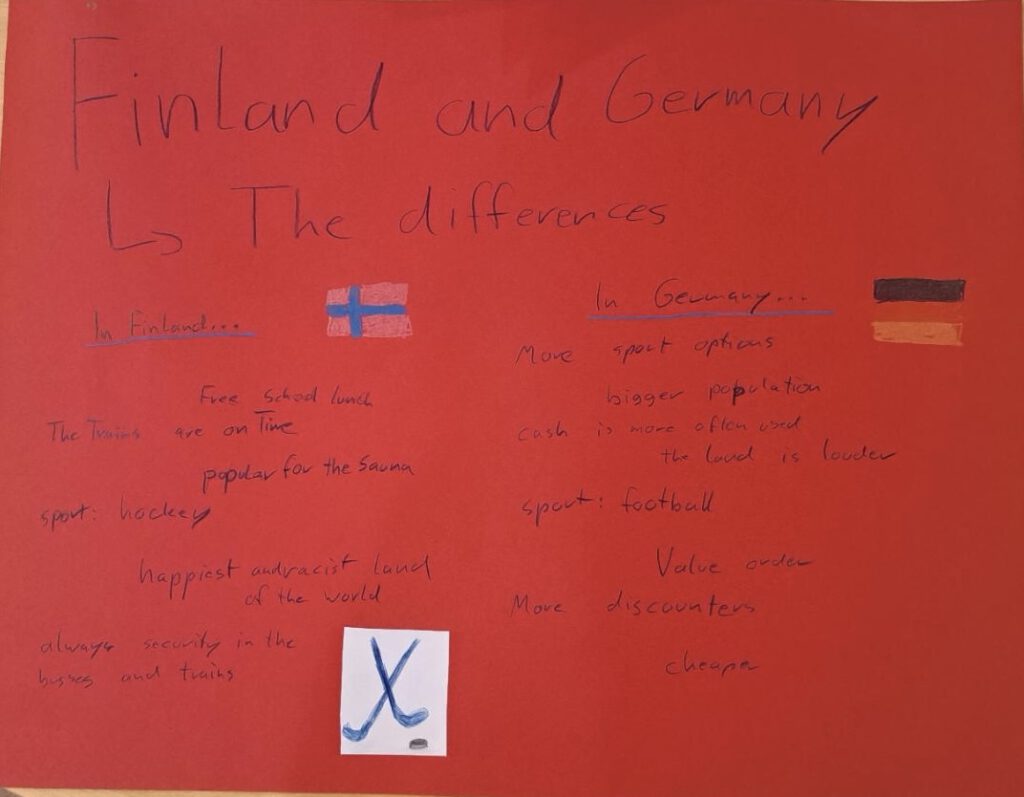 Finland and Germany
↳ The differences
In Finland...
Free school lunch
The Trains are on Time
popular for the sauna
sport: hockey
happiest and racist land
of the world
always security in the
busses and trains
In Germany...
More sport options
bigger population
cash is more often used
the land is louder
sport: football
Value order
More discounters
cheaper